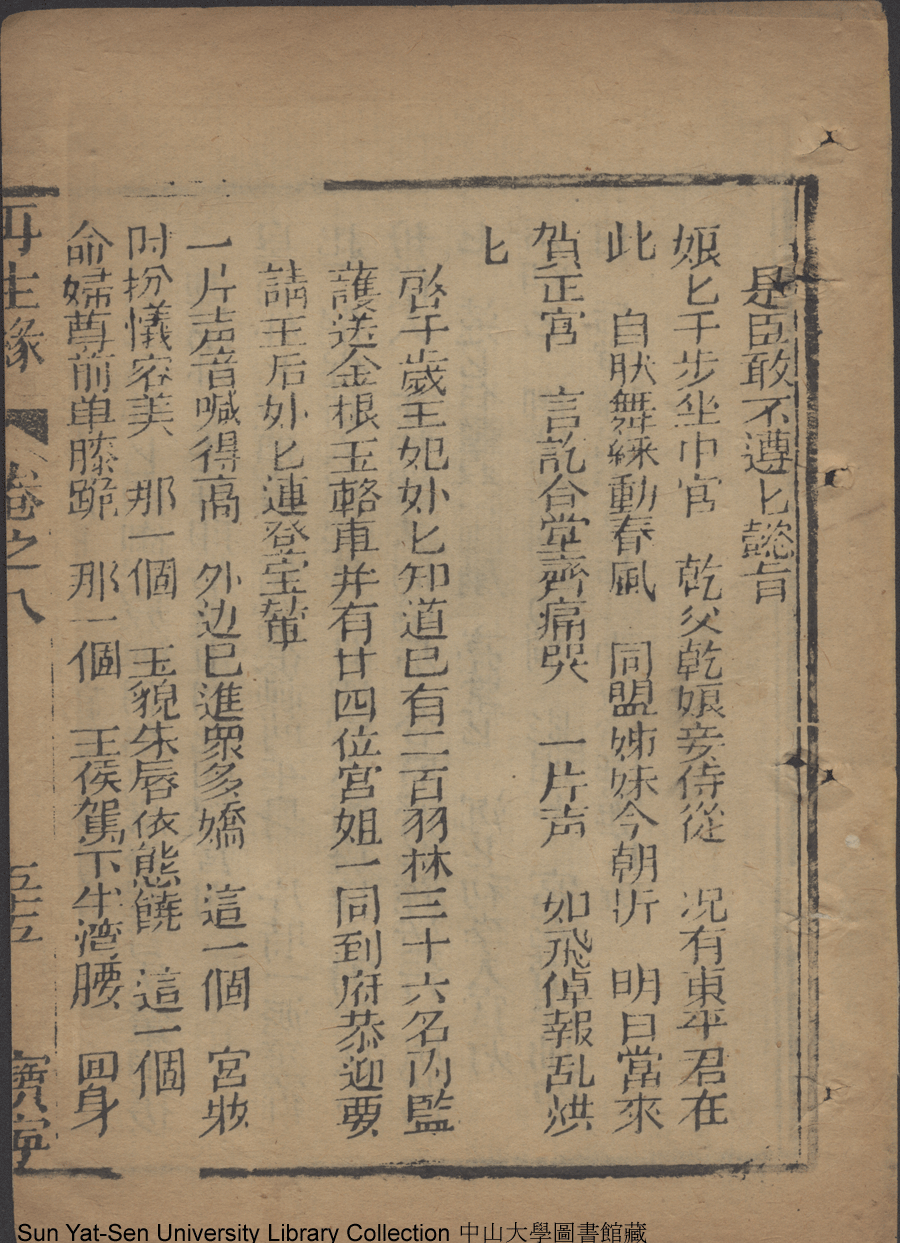 是臣敢不遵匕懿旨
娘匕千步坐中宮　乾父乾娘妾侍從　况有東平君在
此　自肰舞綵動春風　同盟姊妹今朝沂　明日當來
賀正宮　言訖合堂齊痛哭　一片声　如飛倬報乱烘
匕
啓千歲王妃外匕知道已有二百羽林三十六名內監
護送金根玉輅車并有廿四位宮姐一同到府恭迎要
請王后外匕連登宝輦
一片声音喊得高　外边已進衆多嬌　這一個　宮妝
时扮儀容美　那一個　玉貌朱唇依態饒　這一個
命婦尊前单膝跪　那一個　王侯駕下半灣腰　回身
再生緣　卷之八　五十五　寶寧
Sun Yat-Sen University Library Collection 中山大學圖書館藏